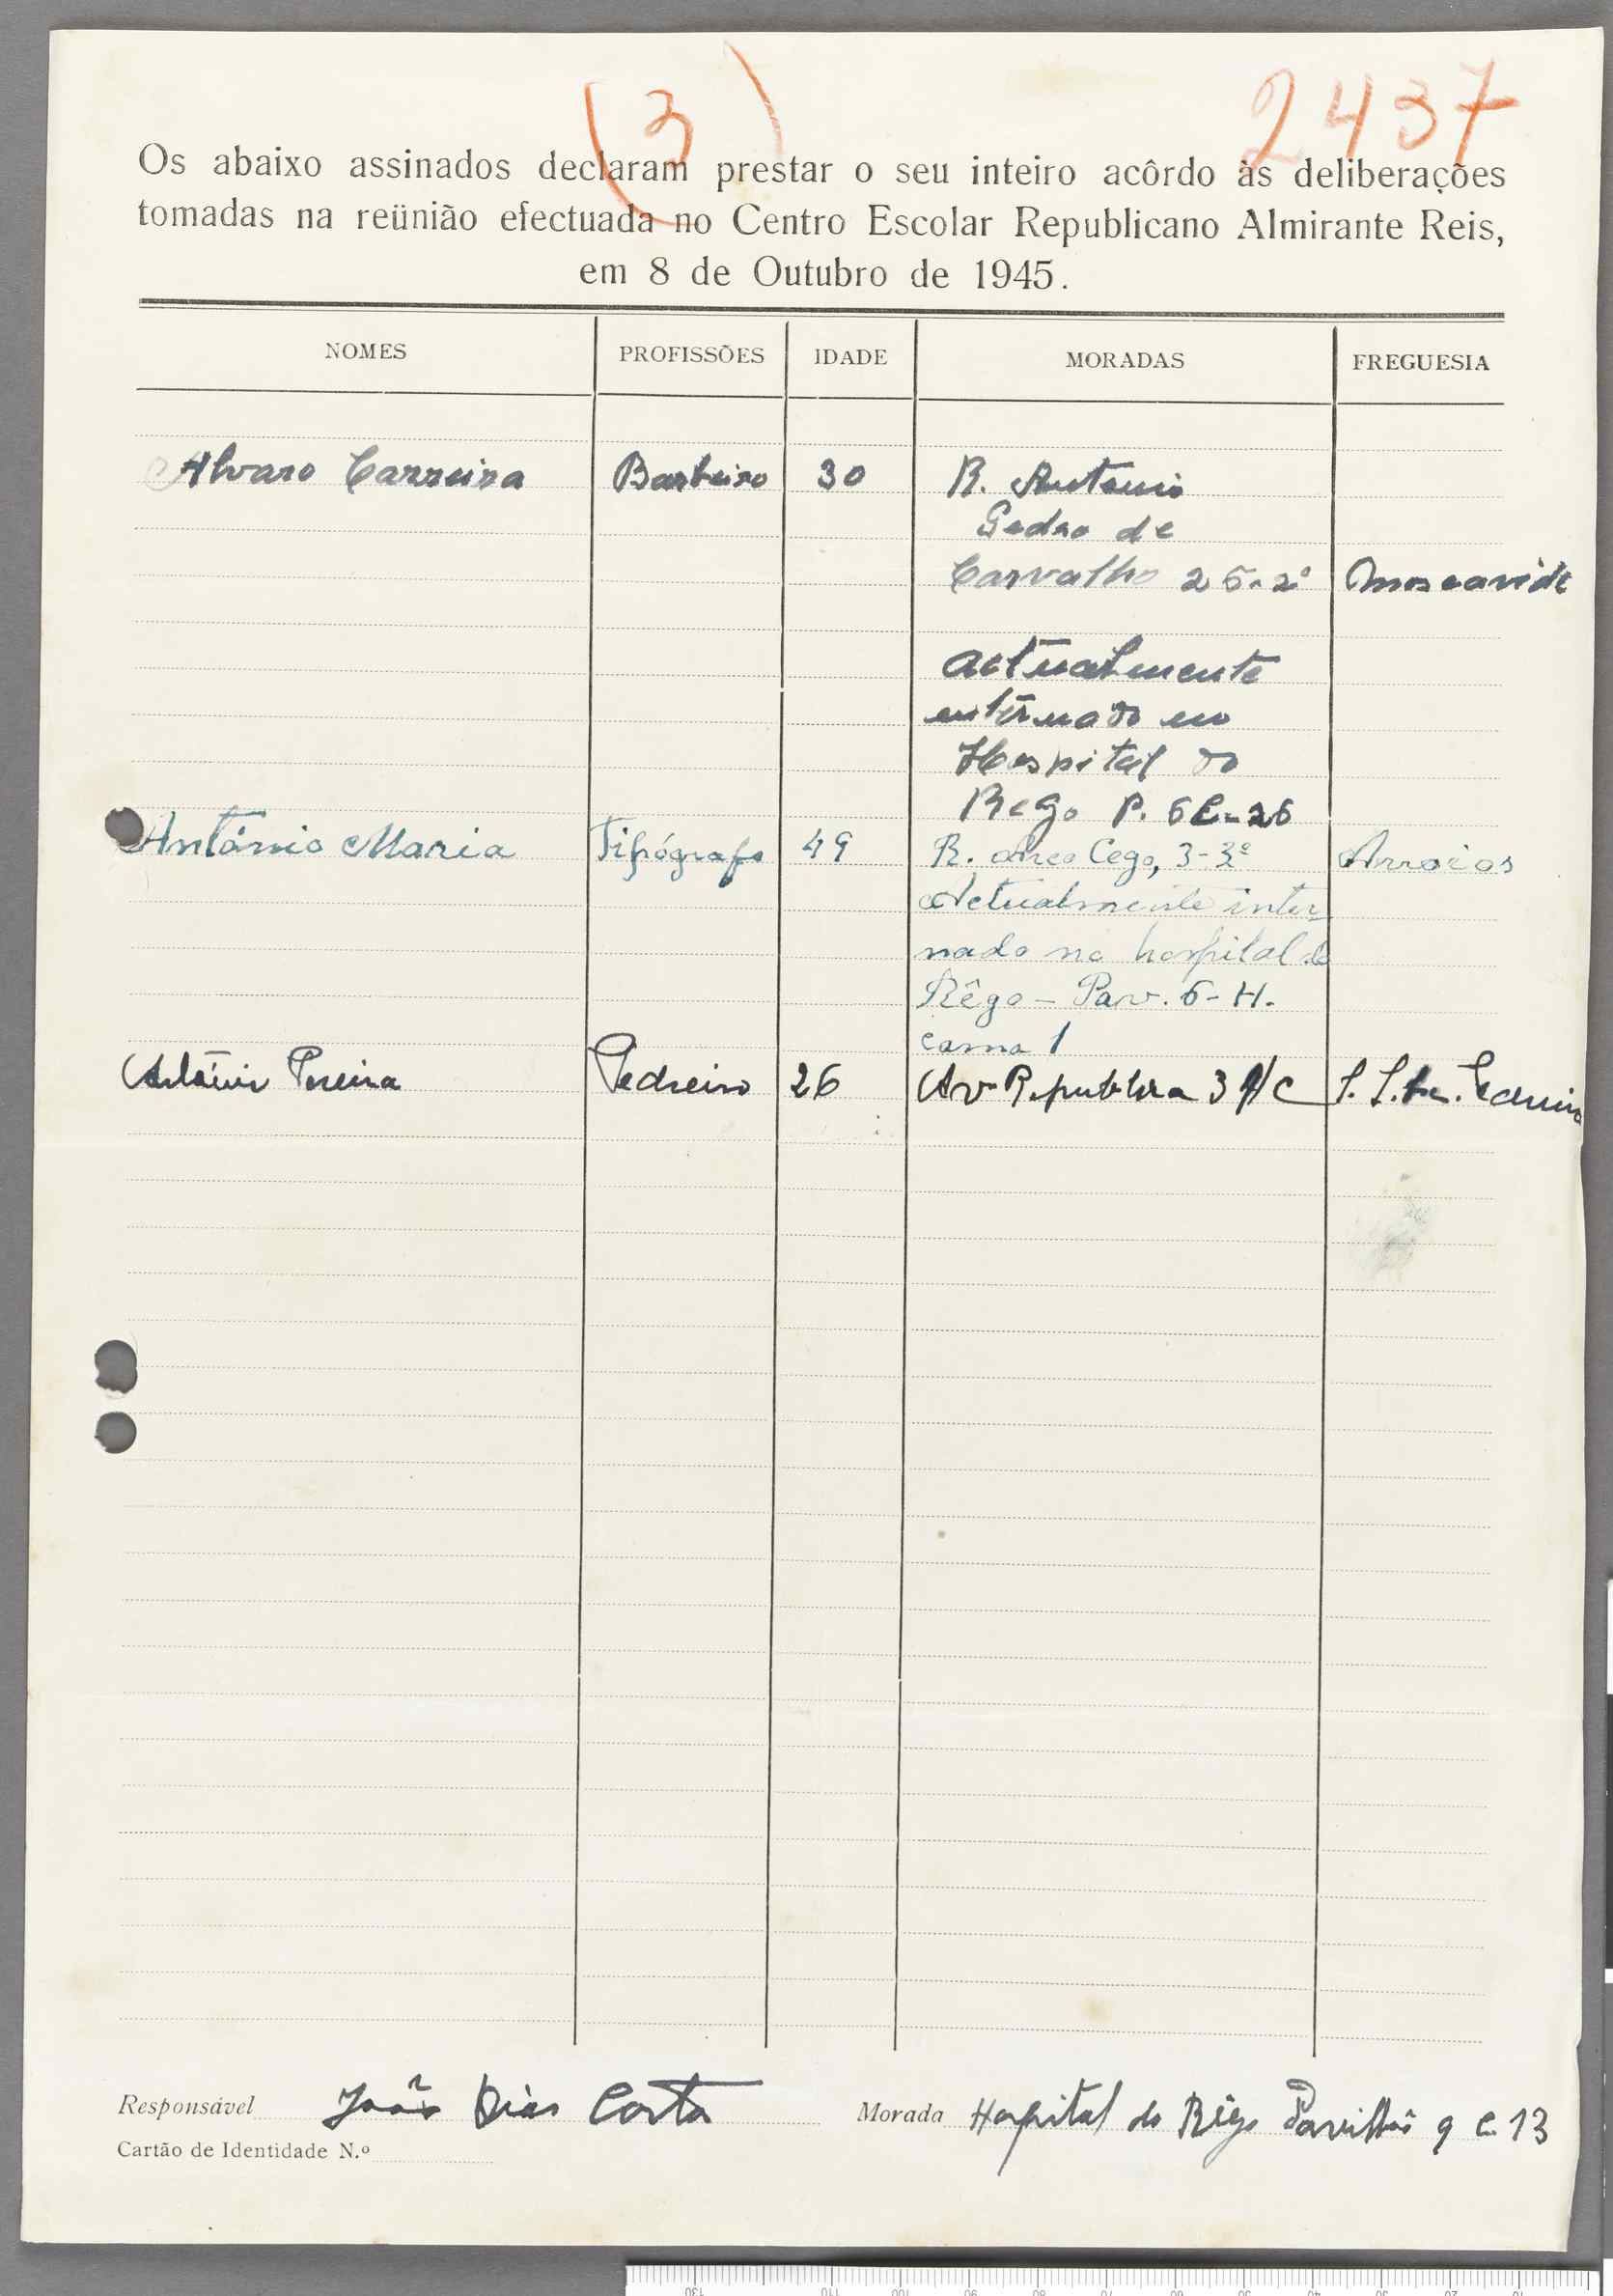 (3)
2437
Os abaixo assinados declaram prestar o seu inteiro acôrdo às deliberações
tomadas na reünião efectuada no Centro Escolar Republicano Almirante Reis,
em 8 de Outubro de 1945.
NOMES PROFISSÕES IDADE MORADAS FREGUESIA
Alvaro Carreira Barbeiro 30 R. Antonio
Pedro de
Carvalho 25-2º Moscavide
actualmente
enternado no
Hospital do
Rego P. 6 C-26
António Maria Tipógrafo 49 R. Arco Cego, 3-3º Arroios
Actualmente inter
nado no hospital do
Rêgo - Pav. 5-H.
cama 1
António Pereira Pedreiro 26 Av Republica 3 R/C
Responsável João Dias Costa Morada Hospital do Rêgo Pavilhão 9 C. 13
Cartão de Identidade N.º